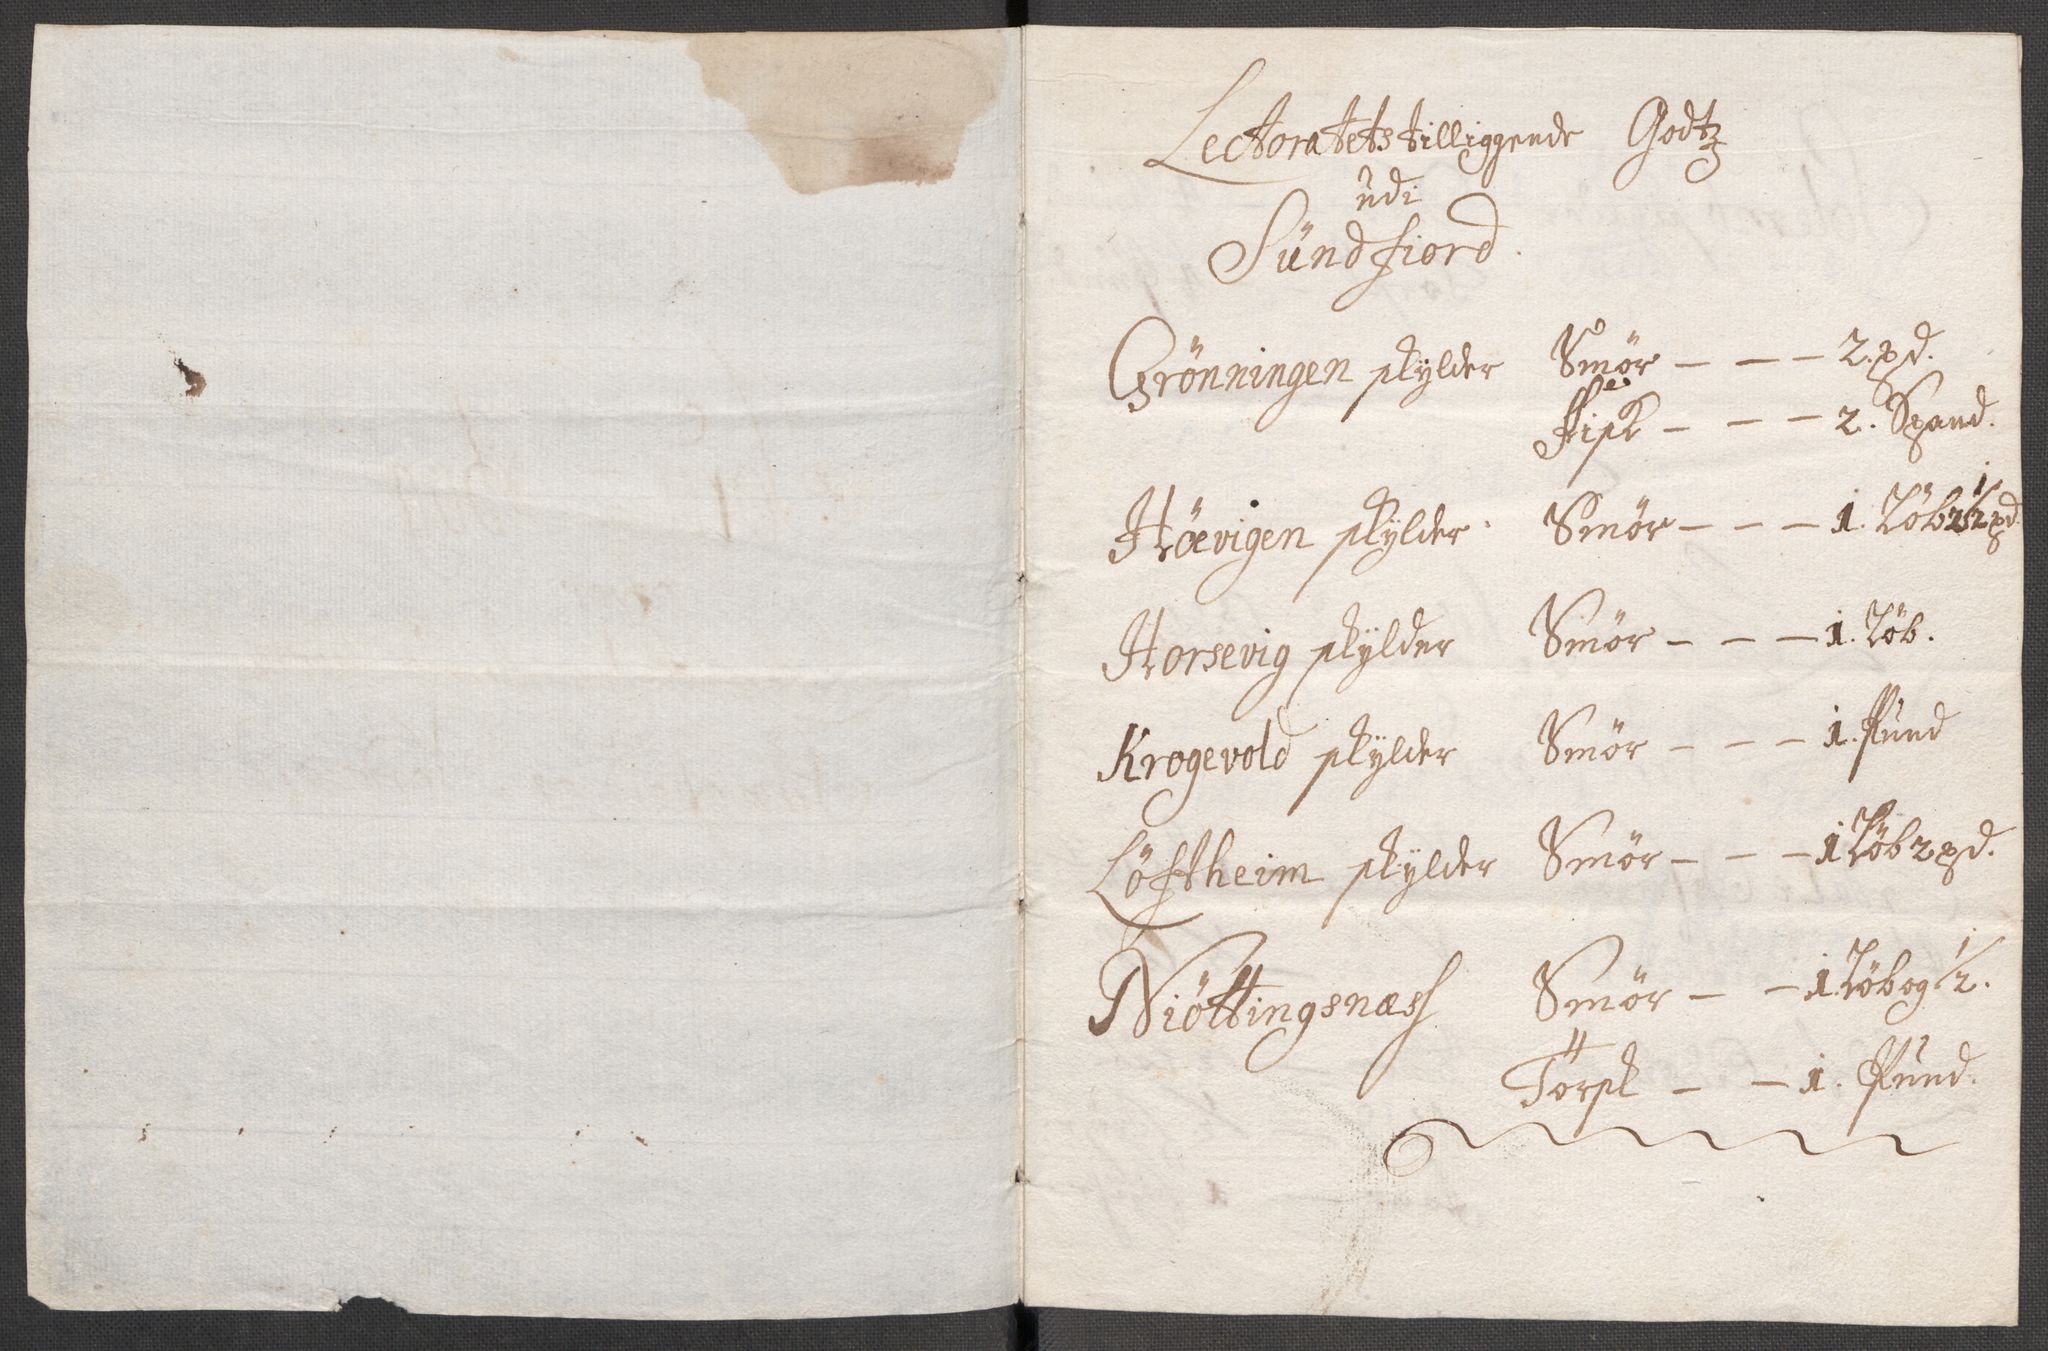 Lectoratets tilliggende Godtz
udi
Sündfiord.
Grönningen skylder Smör — — — 2. pd.
Fisk — — — 2. Spand.
Höevigen skylder Smör — — — 1. Löb 2 1/2 pd.
Horsevig skylder Smör — — — 1. Löb.
Krogevold skylder Smör — — — 1. Pund
Löftheim skylder Smör — — — 1 Löb 2 pd.
Niöttingsnæss Smör — — 1. Löb og 1/2.
Törsk — — 1. Pund.